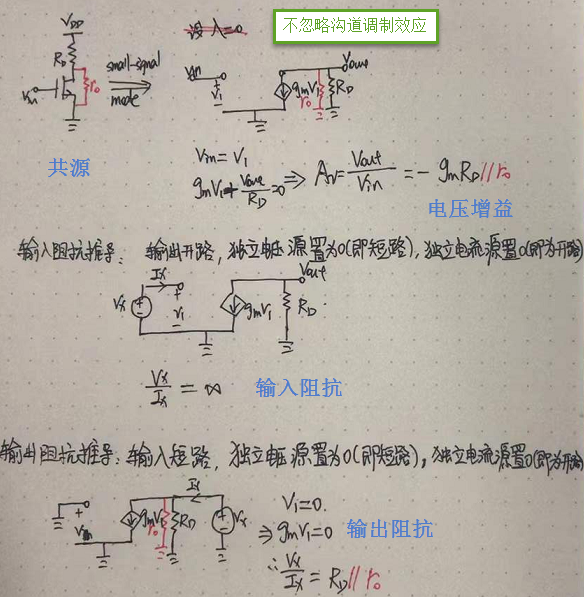 不忽略沟道调制效应
设 λ=0
VDD
RD
ro
Vin
small-signal
mode
共源
Vin
+
V1
-
gmV1
ro
RD
Vout
Vin = V1
gmV1 + Vout/RD = 0 ⇒ Av = Vout/Vin = - gmRD//ro
电压增益
输入阻抗推导: 输出开路, 独立电压源置为0(即短路), 独立电流源置0(即为开路)
Ix
Vx
+
V1
-
gmV1
RD
Vout
Vx/Ix = ∞
输入阻抗
输出阻抗推导: 输入短路, 独立电压源置为0(即短路), 独立电流源置0(即为开路)
+
gmV1
ro
RD
Ix
Vx
V1=0.
⇒ gmV1=0
输出阻抗
∴ Vx/Ix = RD//ro